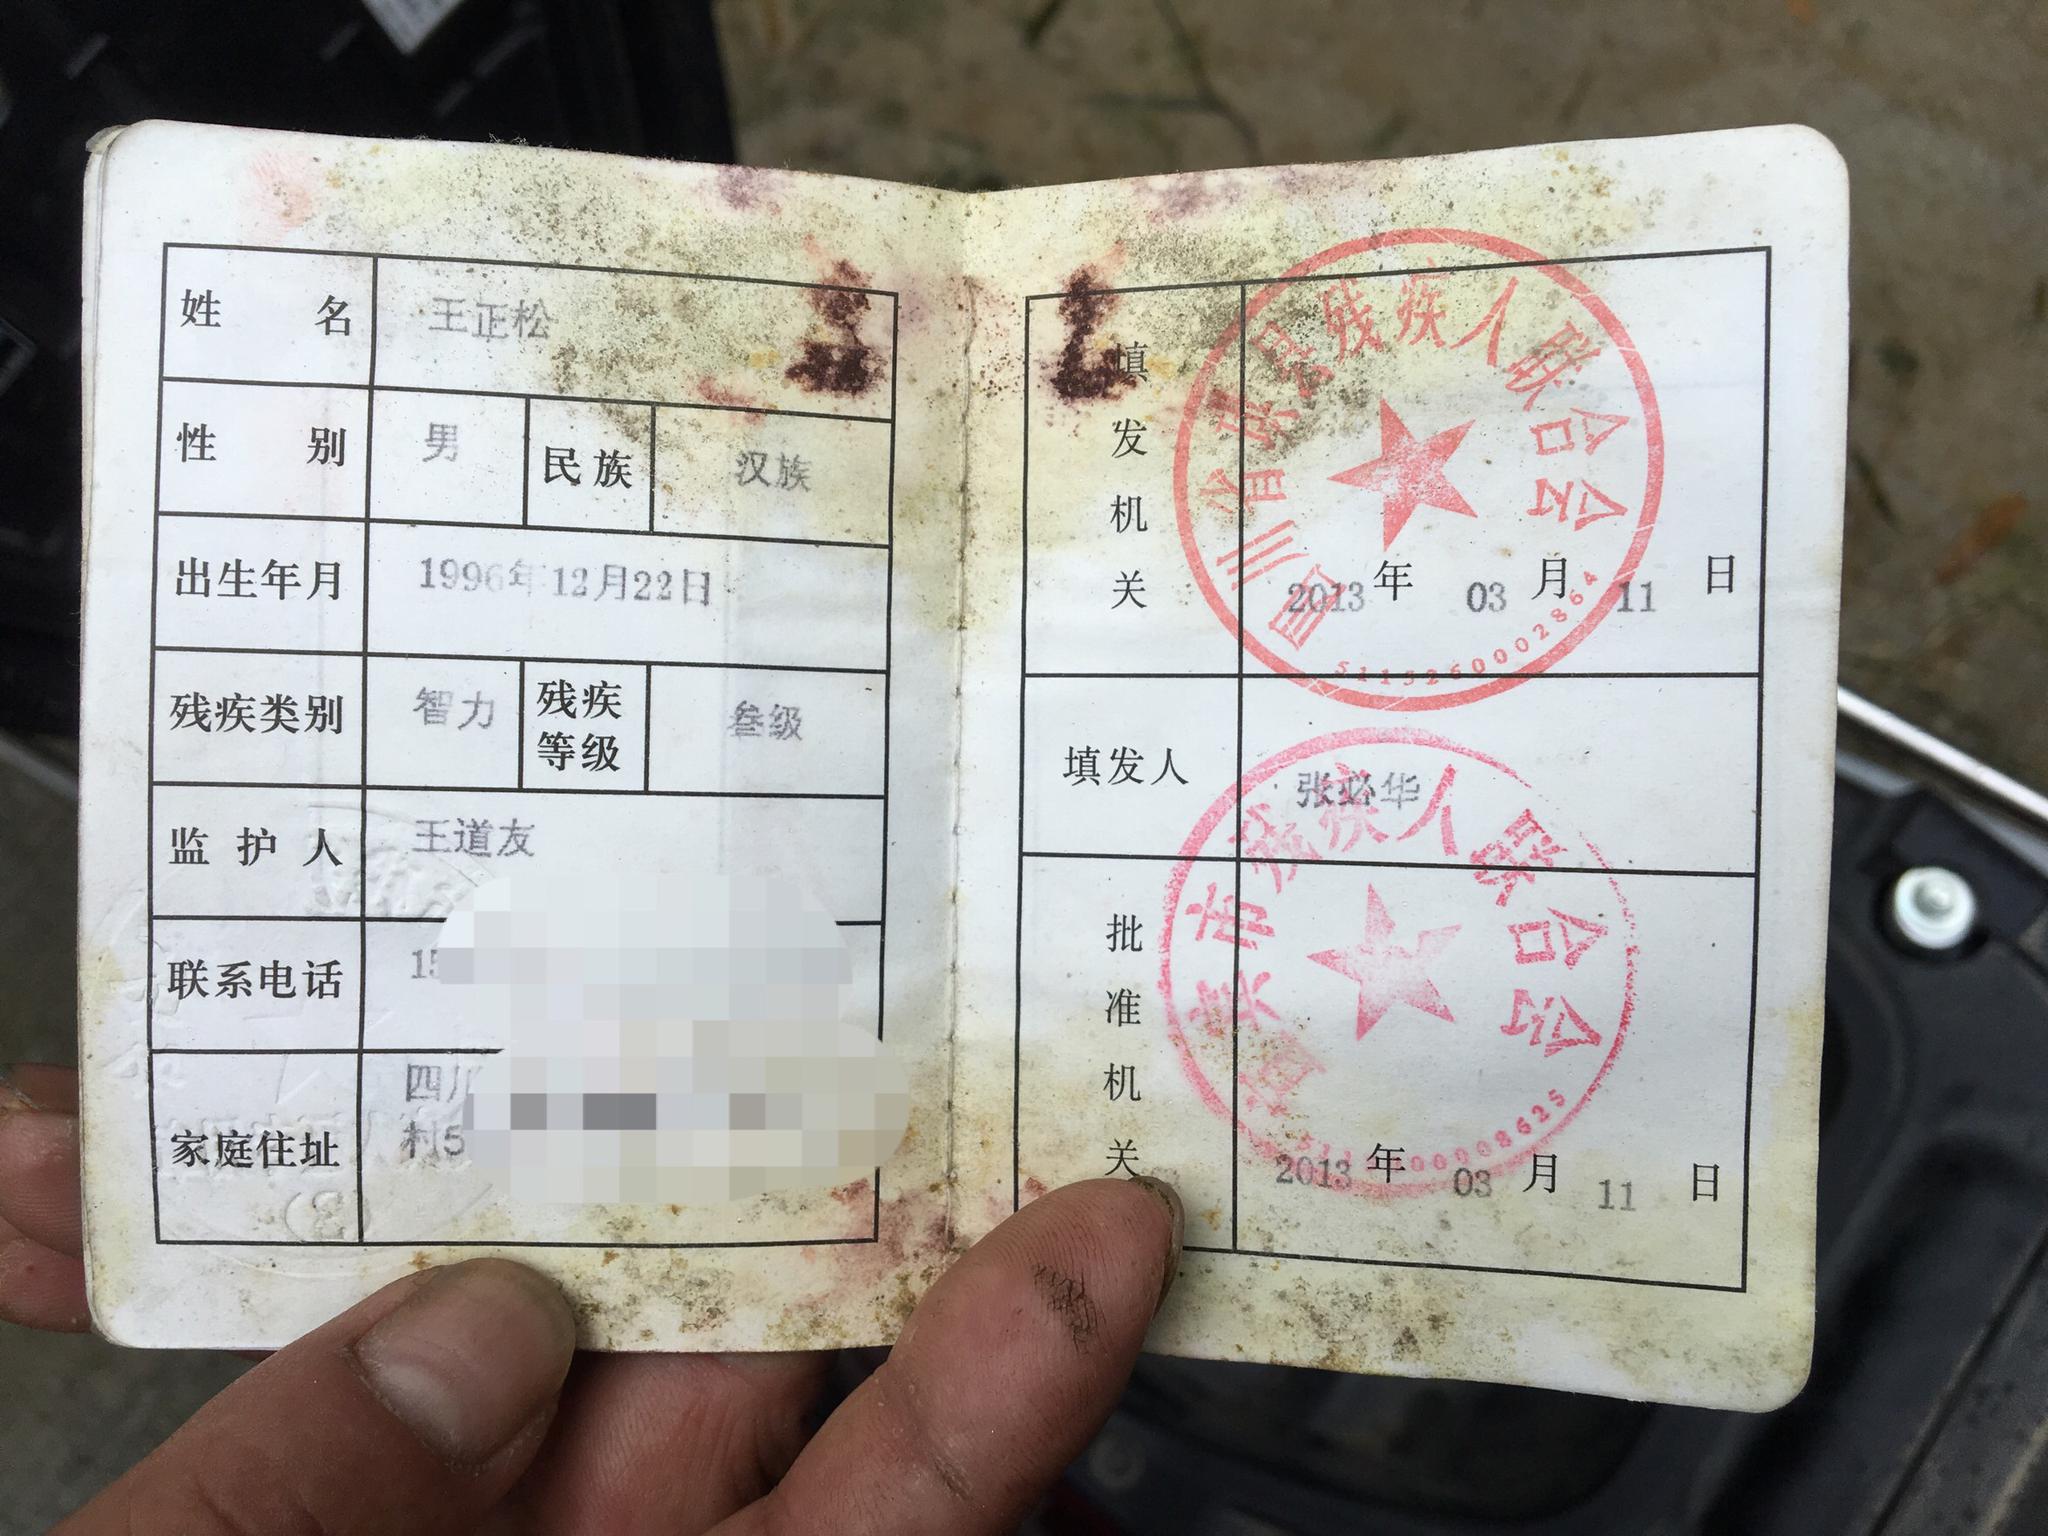 姓名 王正松
性别 男 民族 汉族
出生年月 1996年12月22日
残疾类别 智力 残疾等级 叁级
监护人 王道友
联系电话 15
家庭住址 四川
村5
填发机关
四川省珙县残疾人联合会
2013年 03月 11日
5115260002864
填发人 张必华
批准机关
宜宾市残疾人联合会
2013年 03月 11日